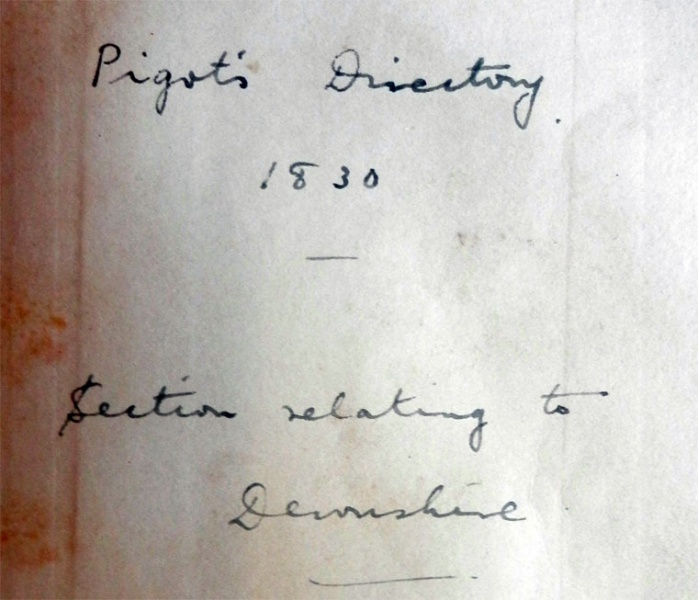 Pigot's Directory.
1830
Section relating to
Devonshire